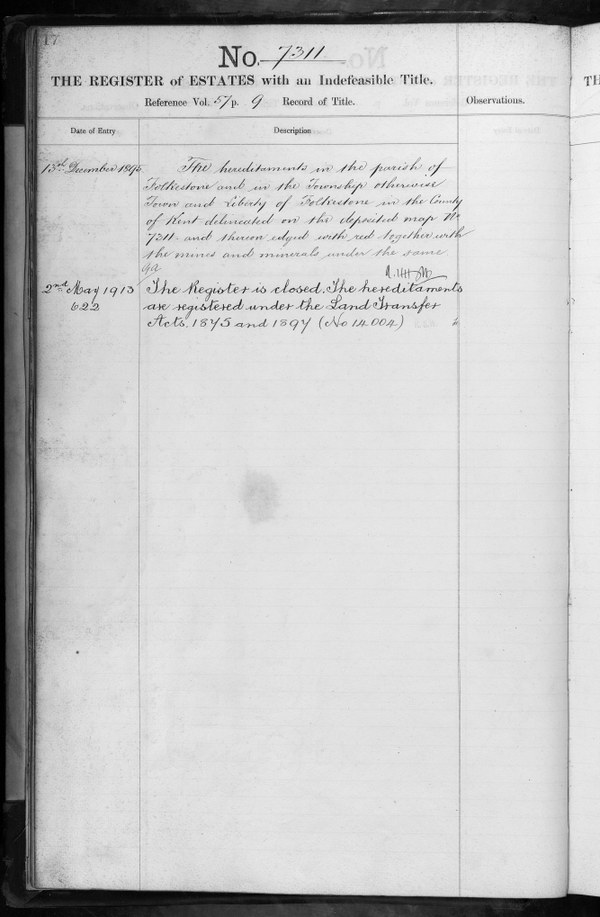 17
No. 7311
THE REGISTER of ESTATES with an Indefeasible Title.
Reference Vol. 57 p. 9 Record of Title.
Observations.
Date of Entry
Description
13th December 1895
The hereditaments in the parish of
Folkestone and in the Township otherwise
Town and Liberty of Folkestone in the County
of Kent delineated on the deposited map No
7311 and thereon edged with red together with
the mines and minerals under the same
2nd May 1913
622
The Register is closed. The hereditaments
are registered under the Land Transfer
Acts, 1875 and 1897 (No 14004)
TH